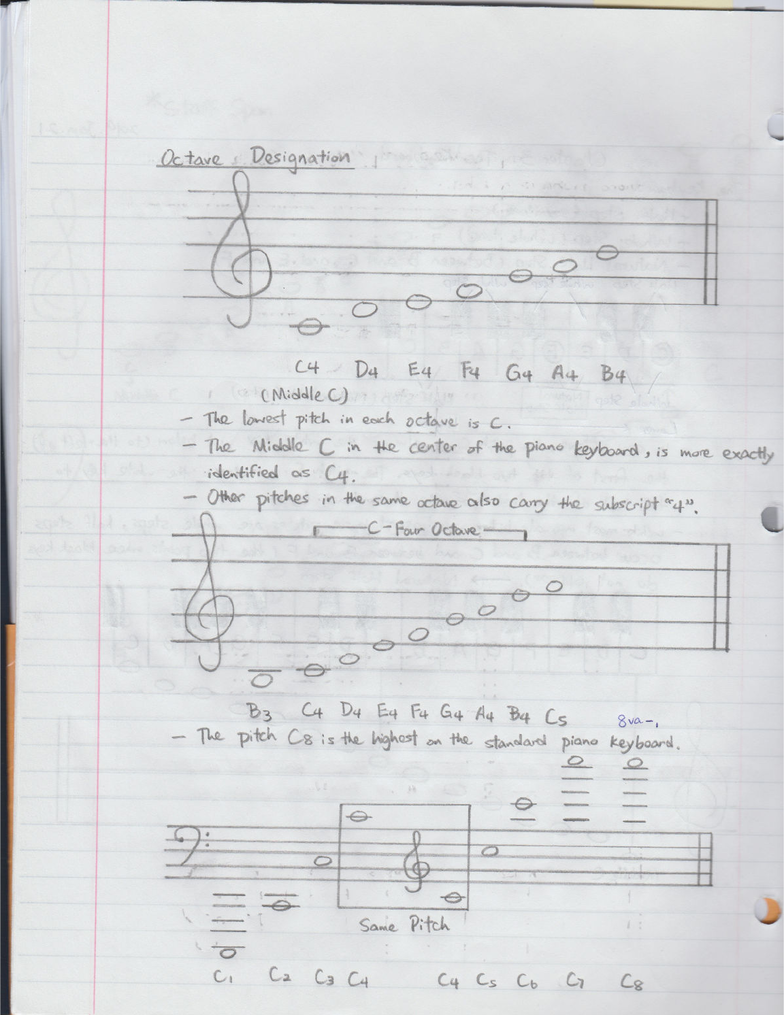 Octave Designation
C4 D4 E4 F4 G4 A4 B4
(Middle C)
- The lowest pitch in each octave is C.
- The Middle C in the center of the piano keyboard, is more exactly
identified as C4.
- Other pitches in the same octave also carry the subscript "4".
C-Four Octave
B3 C4 D4 E4 F4 G4 A4 B4 C5 8va-
- The pitch C8 is the highest on the standard piano keyboard.
Same Pitch
C1 C2 C3 C4 C4 C5 C6 C7 C8